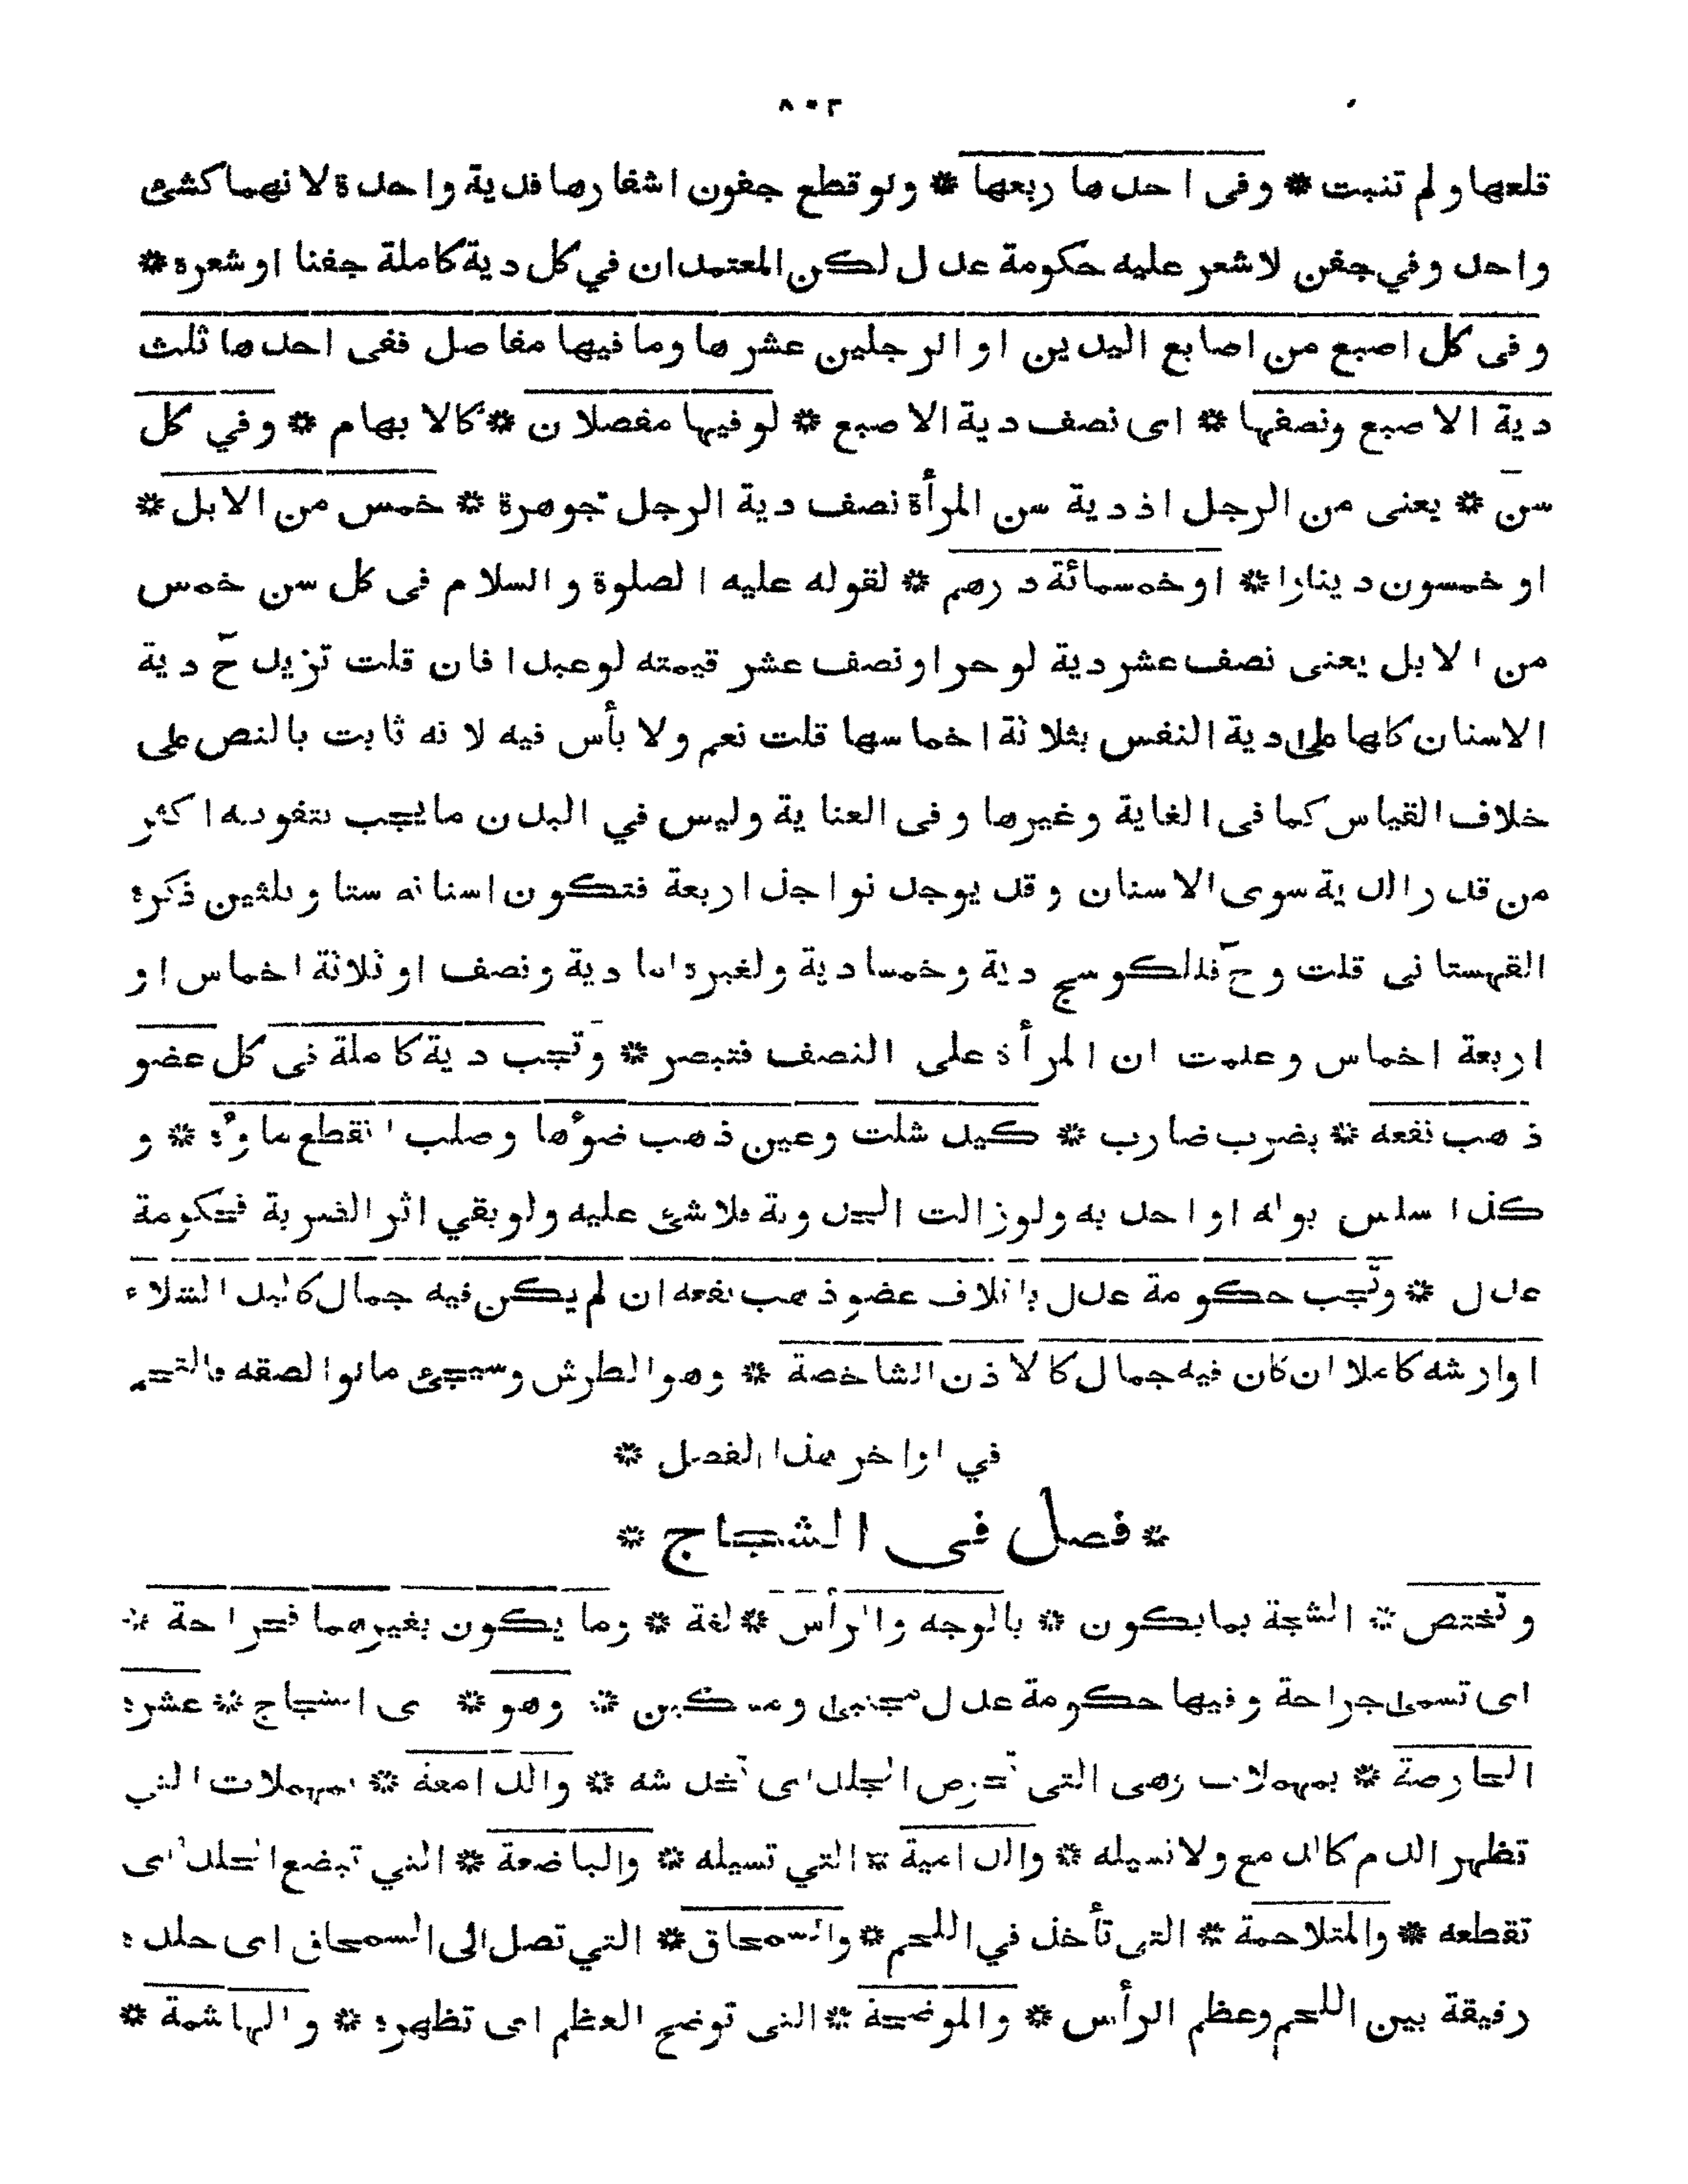 ٨٠٣
قلعها ولم تنبت * وفى احدها ربعها * ولو قطع جفون اشفارها فدية واحدة لانهما كشئ
واحد وفي جفن لاشعر عليه حكومة عدل لكن المعتمدان في كل دية كاملة جفنا اوشعره *
وفى كل اصبع من اصابع اليدين او الرجلين عشرها وما فيها مفاصل ففى احدها ثلث
دية الاصبع ونصفها * اى نصف دية الاصبع * لوفيها مفصلان * كالابهام * وفي كل
سن * يعنى من الرجل اذ دية سن المرأة نصف دية الرجل جوهرة * خمس من الابل *
او خمسون دينارا * اوخمسمائة درهم * لقوله عليه الصلوة والسلام فى كل سن خمس
من الابل يعنى نصف عشر دية لو حرا ونصف عشر قيمته لوعبدا فان قلت تزيد ح دية
الاسنان كلها على دية النفس بثلاثة اخماسها قلت نعم ولا بأس فيه لانه ثابت بالنص على
خلاف القياس كما فى الغاية وغيرها وفى العناية وليس في البدن ما يجب بتفويته اكثر
من قدر الدية سوى الاسنان وقد يوجد نواجذ اربعة فتكون اسنانه ستا وثلثين ذكره
القهستانى قلت وح فللكوسج دية وخمسا دية ولغيره اما دية ونصف او ثلاثة اخماس او
اربعة اخماس وعلمت ان المرأة على النصف فتبصر * وتجب دية كاملة فى كل عضو
ذهب نفعه * بضرب ضارب * كيد شلت وعين ذهب ضوؤها وصلب انقطع ماؤه * و
كذا سلس بوله او احدبه ولوزالت الحدوبة فلاشئ عليه ولوبقي اثر الضربة فحكومة
عدل * وتجب حكومة عدل باتلاف عضو ذهب نفعه ان لم يكن فيه جمال كاليد الشلاء
اوارشه كاملا ان كان فيه جمال كالاذن الشاخصة * وهو الطرش وسيجئ مالو الصقه فالتحم
في اواخر هذا الفصل *
* فصل فى الشجاج *
وتختص * الشجة بما يكون * بالوجه والرأس * لغة * وما يكون بغيرهما فجراحة *
اى تسمى جراحة وفيها حكومة عدل مجتبى ومسكين * وهو * ى الشجاج * عشرة
الحارصة * بمهملات وهى التى تحرص الجلد اى تخدشه * والدامعة * بمهملات التي
تظهر الدم كالدمع ولا تسيله * والدامية * التي تسيله * والباضعة * التي تبضع الجلد اى
تقطعه * والمتلاحمة * التى تأخذ في اللحم * والسمحاق * التي تصل الى السمحاق اى جلدة
رقيقة بين اللحم وعظم الرأس * والموضحة * التى توضح العظم اى تظهره * والهاشمة *